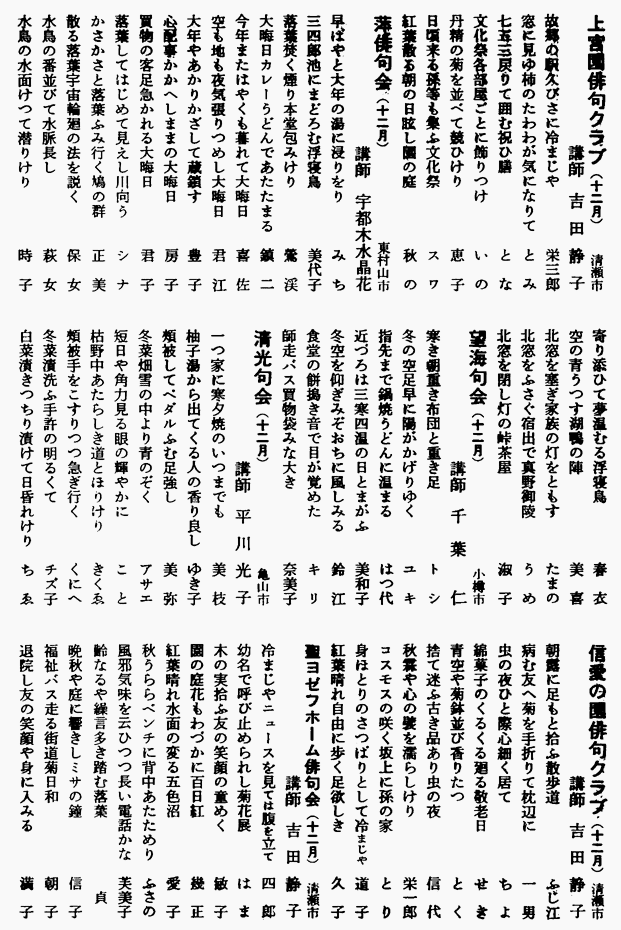 上宮園俳句クラブ（十二月）
清瀬市
講師 吉田静子
故郷の駅久びさに冷まじや 栄三郎
窓に見ゆ柿のたわわが気になりて とみ
七五三戻りて囲む祝ひ膳 とな
文化祭各部屋ごとに飾りつけ いの
丹精の菊を並べて競ひけり 恵子
日頃来る孫等も集ふ文化祭 スワ
紅葉散る朝の日眩し園の庭 秋の
萍俳句会（十二月）
東村山市
講師 宇都木水晶花
早ばやと大年の湯に浸りをり みち
三四郎池にまどろむ浮寝鳥 美代子
落葉焚く煙り本堂包みけり 鶯渓
大晦日カレーうどんであたたまる 鎮二
今年またはやくも暮れて大晦日 喜佐
空も地も夜気張りつめし大晦日 君江
大年やあかりかざして蔵鎖す 豊子
心配事かかへしままの大晦日 房子
買物の客足急かれる大晦日 君子
落葉してはじめて見えし川向う シナ
かさかさと落葉ふみ行く鳩の群 正美
散る落葉宇宙輪廻の法を説く 保女
水鳥の番並びて水脈長し 萩女
水鳥の水面けつて潜りけり 時子
寄り添ひて夢温むる浮寝鳥 春衣
空の青うつす湖鴨の陣 美喜
北窓を塞ぎ家族の灯をともす たまの
北窓をふさぐ宿出で真野御陵 うめ
北窓を閉し灯の峠茶屋 淑子
望海句会（十二月）
小樽市
講師 千葉仁
寒き朝重き布団と重き足 トシ
冬の空足早に陽がかげりゆく ユキ
指先まで鍋焼うどんに温まる はつ代
近づろは三寒四温の日とまがふ 美和子
冬空を仰ぎみぞおちに風しみる 鈴江
食堂の餅搗き音で目が覚めた キリ
師走バス買物袋みな大き 奈美子
清光句会（十二月）
亀山市
講師 平川光子
一つ家に寒夕焼のいつまでも 美枝
柚子湯から出てくる人の香り良し ゆき子
頬被してペダルふむ足強し 美弥
冬菜畑雪の中より青のぞく アサエ
短日や角力見る眼の輝やかに こと
枯野中あたらしき道とほりけり きくゑ
頬被手をこすりつつ急ぎ行く くにへ
冬菜漬洗ふ手許の明るくて チズ子
白菜漬きつちり漬けて日昏れけり ちゑ
信愛の園俳句クラブ（十二月）
清瀬市
講師 吉田静子
朝露に足もと拾ふ散歩道 ふじ江
病む友へ菊を手折りて枕辺に 一男
虫の夜ひと際心細く居て ちよ
綿菓子のくるくる廻る敬老日 せき
青空や菊鉢並び香りたつ とく
捨て迷ふ古き品あり虫の夜 信代
秋霖や心の襞を濡らしけり 栄一郎
コスモスの咲く坂上に孫の家 とり
身ほとりのさつぱりとして冷まじや 道子
紅葉晴れ自由に歩く足欲しき 久子
聖ヨゼフホーム俳句会（十二月）
清瀬市
講師 吉田静子
冷まじやニュースを見ては腹を立て 四郎
幼名で呼び止められし菊花展 はま
木の実拾ふ友の笑顔の童めく 敏子
園の庭花もわづかに百日紅 幾正
紅葉晴れ水面の変る五色沼 愛子
秋うららベンチに背中あたためり ふさの
風邪気味を云ひつつ長い電話かな 芙美子
齢なるや繰言多き踏む落葉 貞
晩秋や庭に響きしミサの鐘 信子
福祉バス走る街道菊日和 朝子
退院し友の笑顔や身に入みる 満子